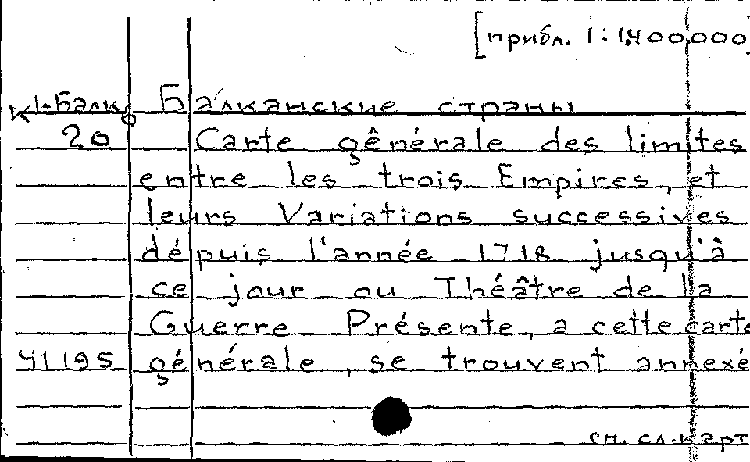 [прибл. 1:1,800,000
К1-Балк. Балканские страны
20 Carte gênérale des limites
entre les trois Empires, et
leurs Variations successives
dépuis l'année 1718 jusqu'à
ce jour ou Théâtre de la
Guerre Présente, a cette carte
Ч1195 générale, se trouvent annexé
см. сл. карт